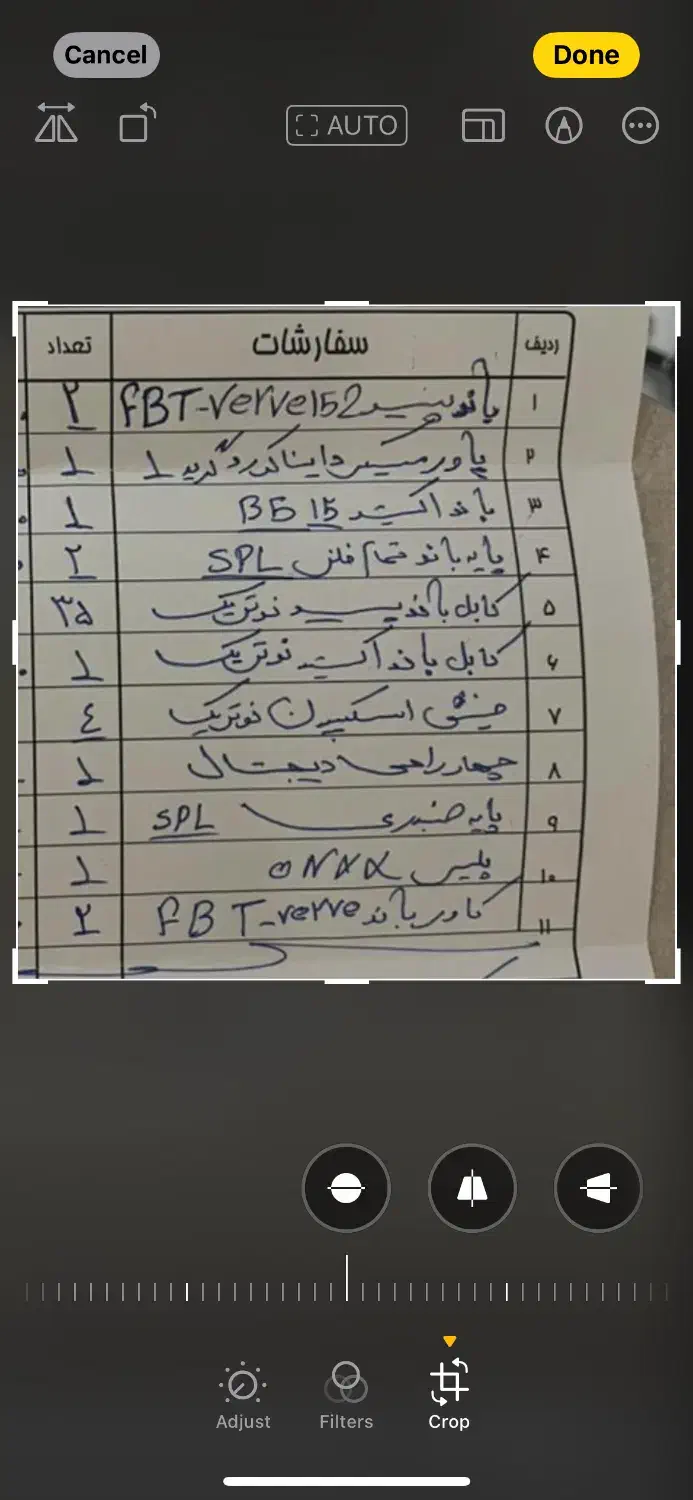 Cancel
Done
AUTO
ردیف سفارشات تعداد
۱ باند پسیو FBT-Verve152 ۲
۲ پاور میکسر دایناکورد گرید 1 ۱
۳ باند اکتیو B5 15 ۱
۴ پایه باند تمام فلزی SPL ۲
۵ کابل باند پسیو نوتریک ۳۵
۶ کابل باند اکتیو نوتریک ۱
۷ فیش اسکیپون نوتریک ٤
۸ چهار راهی دیجیتال ۱
۹ پایه صندری SPL ۱
۱۰ پلیر ONXX ۱
۱۱ کاور باند FBT-verve ۲
Adjust
Filters
Crop